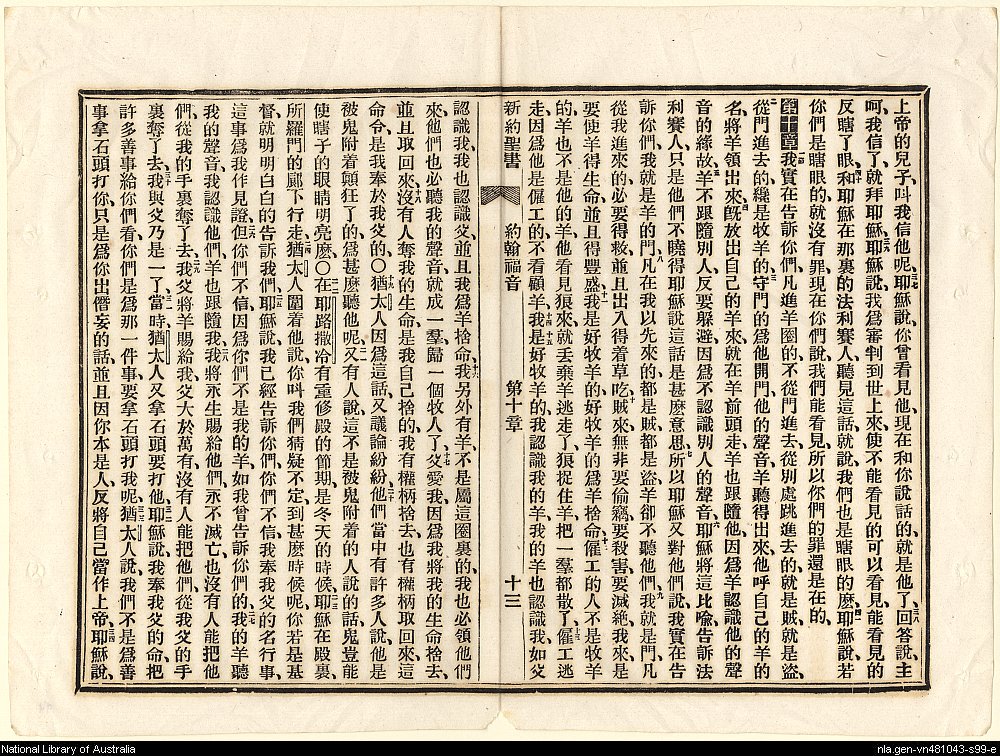 上帝的兒子叫我信他呢、三七耶穌說、你曾看見他、現在和你說話的、就是他了、三八回答說、主
呵、我信了、就拜耶穌、三九耶穌說、我爲審判到世上來、使不能看見的、可以看見、能看見的
反瞎了眼、四十和耶穌在那裏的法利賽人、聽見這話、就說、我們也是瞎眼的麽、四一耶穌說、若
你們是瞎眼的、就沒有罪、現在你們說、我們能看見、所以你們的罪還是在的、
第十章一我實在告訴你們、凡進羊圈的、不從門進去、從別處跳進去的、就是賊、就是盜、
二從門進去的、纔是牧羊的、三守門的爲他開門、他的聲音、羊聽得出來、他呼自己的羊的
名、將羊領出來、四旣放出自己的羊來、就在羊前頭走、羊也跟隨他、因爲羊認識他的聲
音的緣故、五羊不跟隨別人、反要躱避、因爲不認識別人的聲音、六耶穌將這比喩告訴法
利賽人、只是他們不曉得耶穌說這話是甚麽意思、七所以耶穌又對他們說、我實在告
訴你們、我就是羊的門、八凡在我以先來的、都是賊、都是盜、羊卻不聽他們、九我就是門、凡
從我進來的、必要得救、並且出入得着草吃、十賊來無非要偷竊、要殺害、要滅絕、我來、是
要使羊得生命、並且得豐盛、十一我是好牧羊的、好牧羊的爲羊捨命、十二僱工的人、不是牧羊
的、羊也不是他的羊、他看見狼來、就丟棄羊逃走了、狼捉住羊、把一羣都散了、十三僱工逃
走、因爲他是僱工的、不看顧羊、十四我是好牧羊的、我認識我的羊、我的羊也認識我、十五如父
新約聖書 約翰福音 第十章 十三
認識我、我也認識父、並且我爲羊捨命、十六我另外有羊、不是屬這圈裏的、我也必領他們
來、他們也必聽我的聲音、就成一羣、歸一個牧人了、十七父愛我、因爲我將我的生命捨去、
並且取回來、十八沒有人奪我的生命、是我自己捨的、我有權柄捨去、也有權柄取回來、這
命令、是我奉於我父的、○十九猶太人因爲這話、又議論紛紛、二十他們當中有許多人說、他是
被鬼附着顛狂了的、爲甚麽聽他呢、二一又有人說、這不是被鬼附着的人說的話、鬼豈能
使瞎子的眼睛明亮麽、○二二在耶路撒冷有重修殿的節期、是冬天的時候、二三耶穌在殿裏
所羅門的廊下行走、二四猶太人圍着他說、你叫我們猜疑不定到甚麽時候呢、你若是基
督、就明明白白的告訴我們、二五耶穌說、我已經告訴你們、你們不信、我奉我父的名行事、
這事爲我作見證、二六但你們不信、因爲你們不是我的羊、如我曾告訴你們的、二七我的羊聽
我的聲音、我認識他們、羊也跟隨我、二八我將永生賜給他們、永不滅亡、也沒有人能把他
們、從我的手裏奪了去、二九我父將羊賜給我、父大於萬有、沒有人能把他們、從我父的手
裏奪了去、三十我與父乃是一了、三一當時猶太人又拿石頭要打他、三二耶穌說、我奉我父的命、把
許多善事給你們看、你們是爲那一件事、要拿石頭打我呢、三三猶太人說、我們不是爲善
事拿石頭打你、只是爲你出僭妄的話、並且因你本是人、反將自己當作上帝、三四耶穌說、
National Library of Australia
nla.gen-vn481043-s99-e